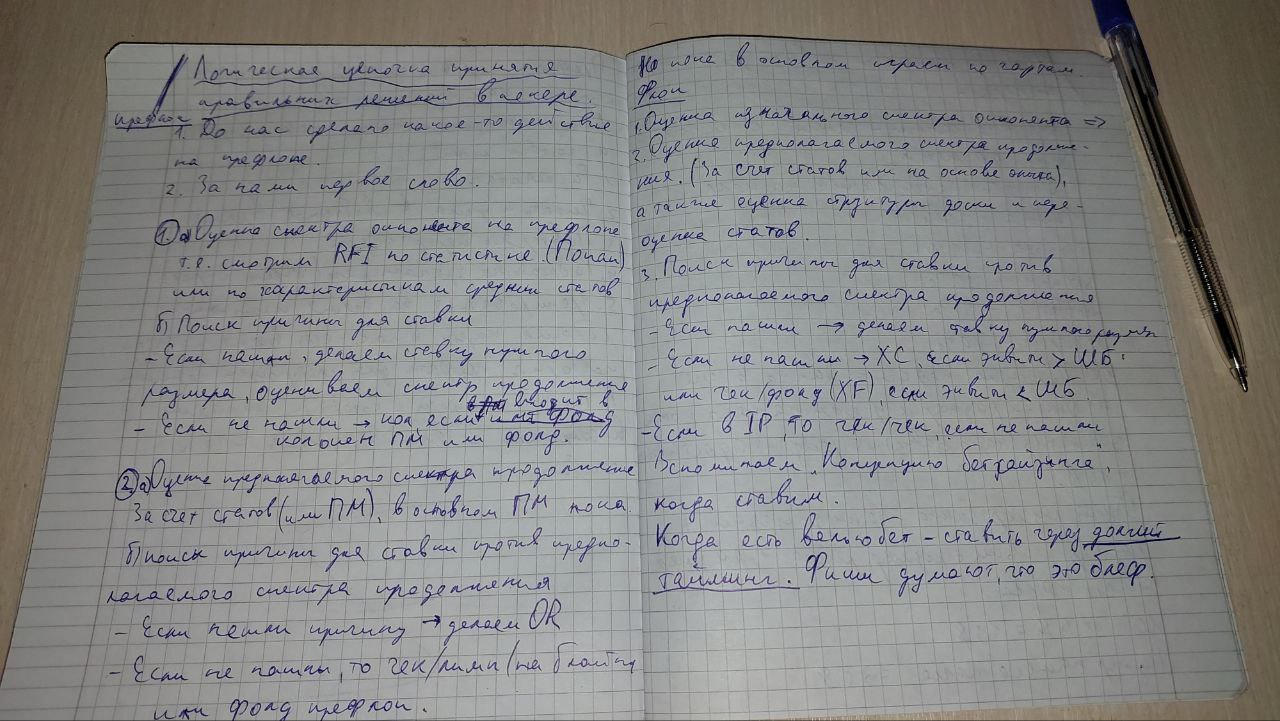 Логическая цепочка принятия
правильных решений в покере.
Префлоп
1. До нас сделано какое-то действие
на префлопе.
2. За нами первое слово.
1) а) Оценка спектра оппонента на префлопе
т.е. смотрим RFI по статистике (Попап)
или по характеристикам средних статов
б) Поиск причины для ставки
- Если нашли, делаем ставку нужного
размера, оцениваем спектр продолжения
- Если не нашли → кол если входит в
колколл ПМ или фолд.
2) а) Оценка предполагаемого спектра продолжение
За счет статов (или ПМ), в основном ПМ пока.
б) поиск причины для ставки против предпо-
лагаемого спектра продолжения
- Если нашли причину → делаем OR
- Если не нашли, то чек/лимп (на блайнд
или фолд префлоп.
Но пока в основном играем по чартам
Флоп
1. Оценка изначального спектра оппонента ⇒
2. Оценка предполагаемого спектра продолже-
ния. (За счет статов или на основе опыта),
а также оценка структуры доски и пере-
оценка статов.
3. Поиск причины для ставки против
предполагаемого спектра продолжения
- Если нашли → делаем ставку нужного размера
- Если не нашли → XC, если эквити > ШБ
или чек/фолд (XF), если эквити < ШБ.
- Если в IP, то чек/чек, если не нашли
Вспоминаем "Концепцию бетсайзинга",
когда ставим.
Когда есть вельюбет - ставить через долгий
тайминг. Фиши думают, что это блеф.